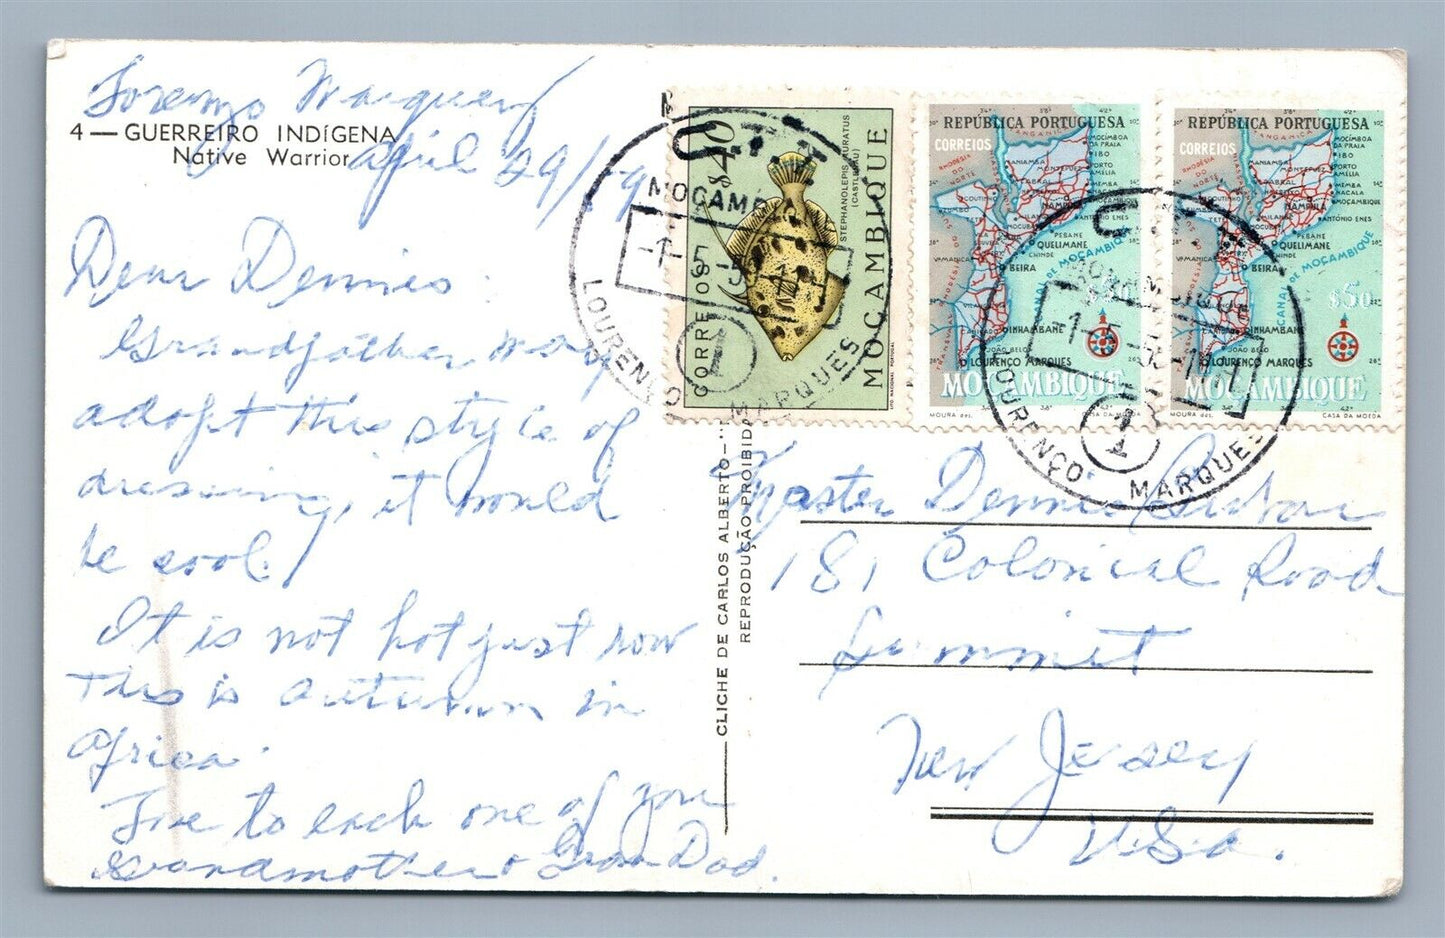 4 — GUERREIRO INDÍGENA
Native Warrior
Lorenzo Marques
April 29/59
Dear Dennis:
Grandfather may
adopt this style of
dressing, it would
be cool.
It is not hot just now
This is autumn in
Africa.
Love to each one of you
Grandmother & Gran Dad.
CLICHE DE CARLOS ALBERTO —
REPRODUÇÃO PROIBIDA
CORREIOS
$40
STEPHANOLEPIS AURATUS
(CASTELNAU)
MOÇAMBIQUE
LOURENÇO MARQUES
REPÚBLICA PORTUGUESA
CORREIOS
QUELIMANE
BEIRA
CANAL DE MOÇAMBIQUE
INHAMBANE
JOÃO BELO
LOURENÇO MARQUES
MOÇAMBIQUE
MOURA des.
CASA DA MOEDA
REPÚBLICA PORTUGUESA
CORREIOS
MOCÍMBOA
DA PRAIA
IBO
PORTO
AMÉLIA
MEMBA
NACALA
NAMPULA
ANTÓNIO ENES
PEBANE
QUELIMANE
CHINDE
BEIRA
CANAL DE MOÇAMBIQUE
$50
INHAMBANE
JOÃO BELO
LOURENÇO MARQUES
MOÇAMBIQUE
MOURA des.
CASA DA MOEDA
LOURENÇO MARQUES
Master Dennis
181 Colonial Road
Summit
New Jersey
U.S.A.